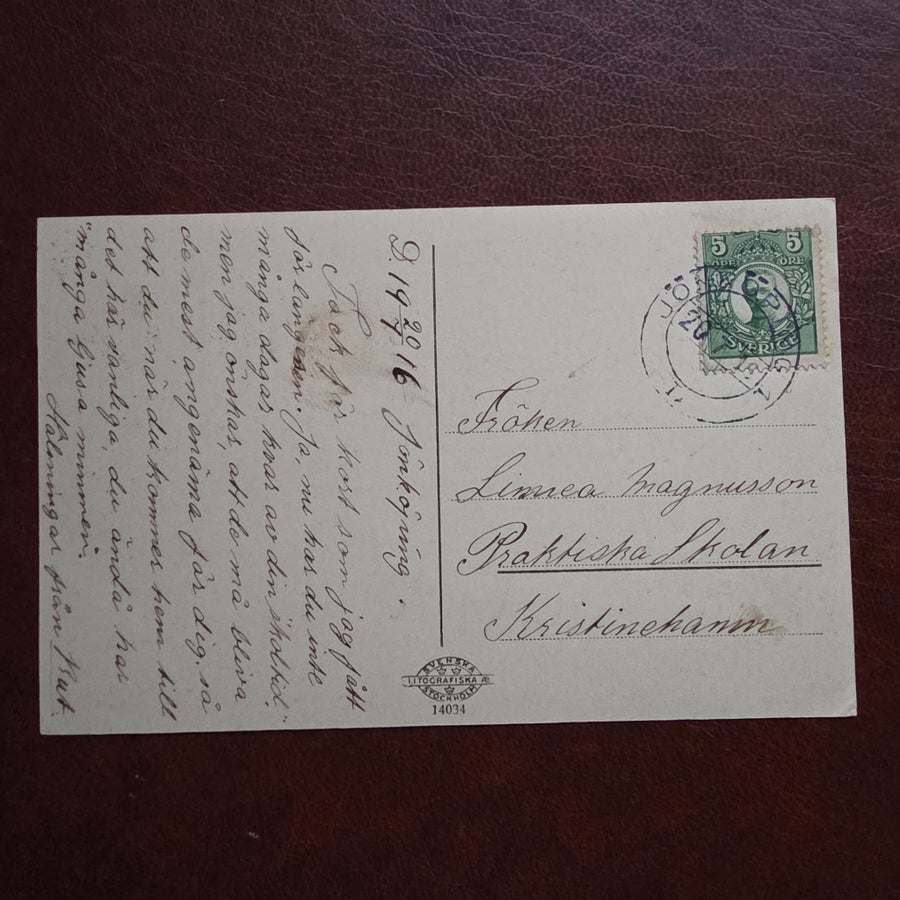 D. 19 20/4 16 Jönköping.
Tack för kort som jag fått
för längesen. Ja, nu har du inte
många dagar kvar av din skoltid
men jag önskar, att de må bliva
de mest angenäma för dig, så
att du när du kommer hem till
det här vanliga, du ändå har
"många ljusa minnen."
Hälsningar från Rut
5 5
ÖRE ÖRE
SVERIGE
JÖNKÖPING 1
20
Fröken
Linnea Magnusson
Praktiska Skolan
Kristinehamn
SVENSKA
LITOGRAFISKA Æ
STOCKHOLM
14034